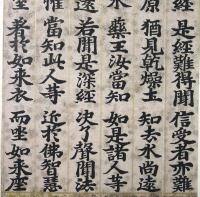 經 是經難得聞 信受者亦難
原 猶見乾燥土 知去水尚遠
水 藥王汝當知 如是諸人等
遠 若聞是深經 決了聲聞法
惟 當知此人等 近於佛智慧
室 著於如來衣 而坐如來座